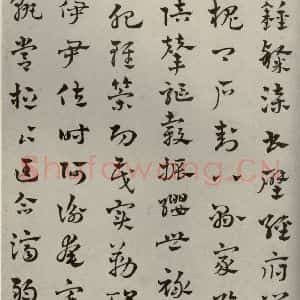 鍾隸漆書壁經府羅
槐卿戶封八縣家給
陪輦驅轂振纓世祿
肥輕策功茂實勒碑
伊尹佐時阿衡奄宅
孰營桓公匡合濟弱
Shufawang.CN